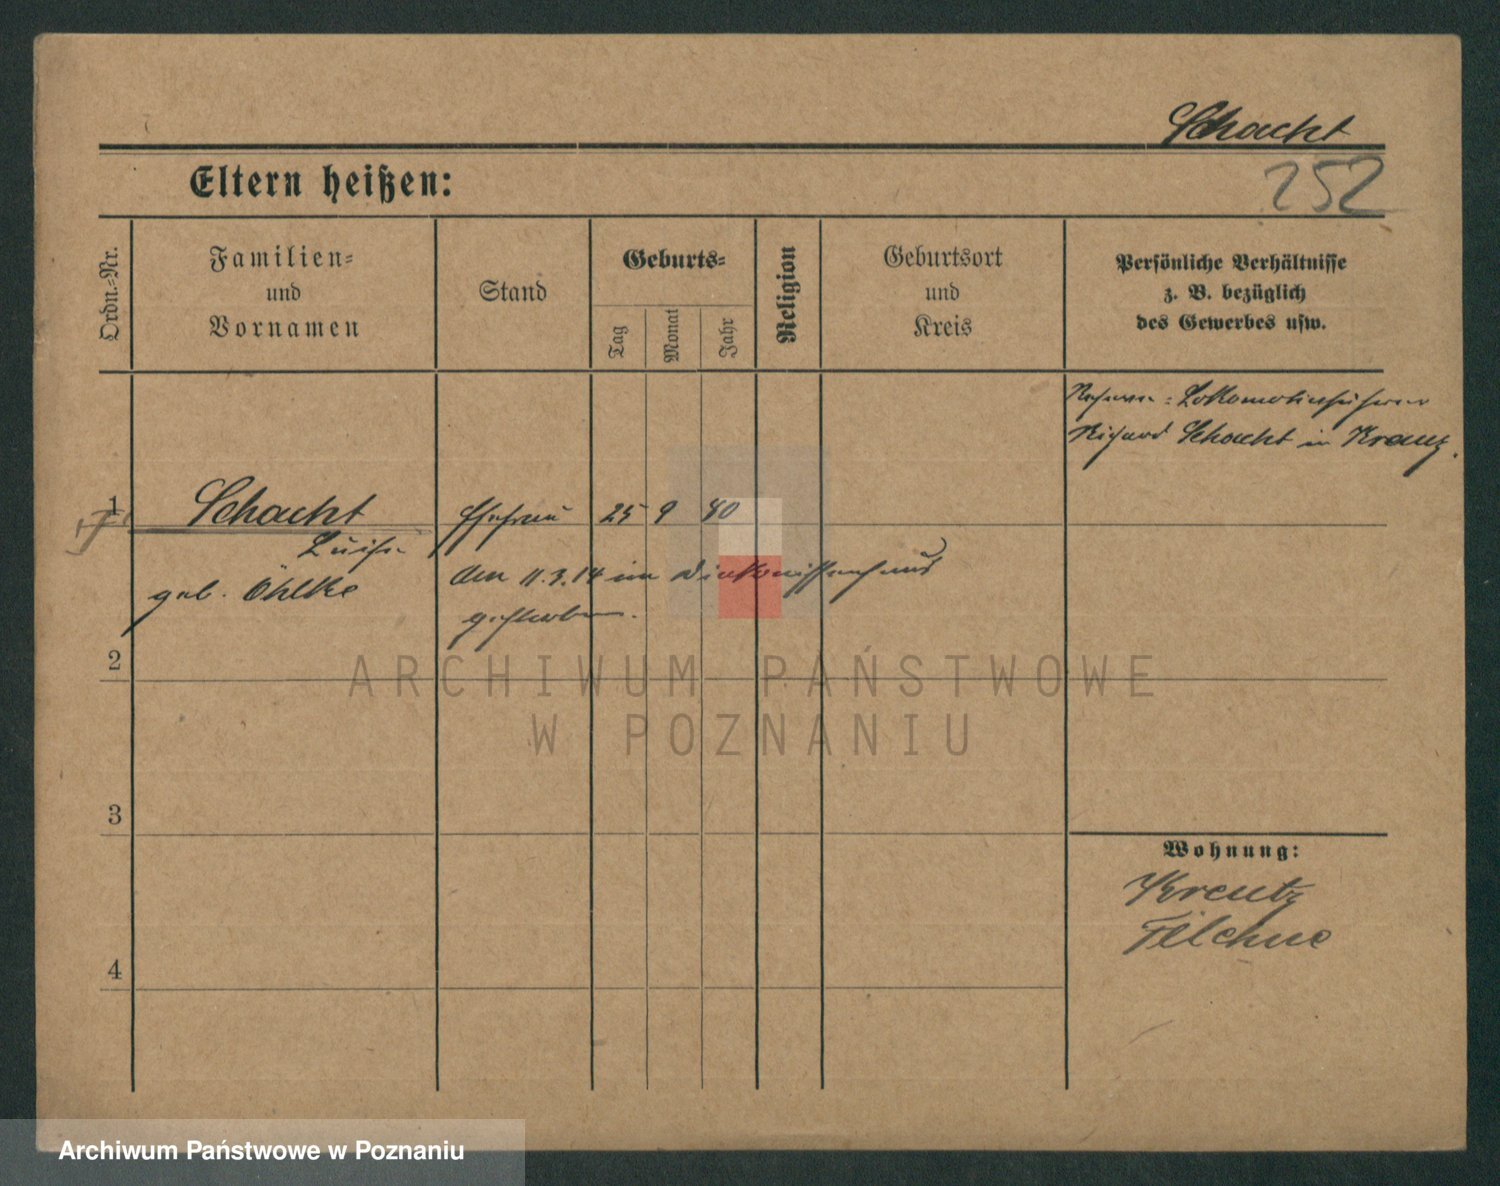 Schacht
252
Eltern heißen:
Ordn.-Nr.
Familien-
und
Vornamen
Stand
Geburts-
Tag
Monat
Jahr
Religion
Geburtsort
und
Kreis
Persönliche Verhältnisse
z. B. bezüglich
des Gewerbes usw.
Lokomotivführer
Richard Schacht in Kreuz.
1 Schacht Ehefrau 25 9 80
Luise
geb. Öhlke
den 11.3.14 im Diakonissenhaus
gestorben.
2
3
4
Wohnung:
Kreutz
Filehne
ARCHIWUM PAŃSTWOWE
W POZNANIU
Archiwum Państwowe w Poznaniu